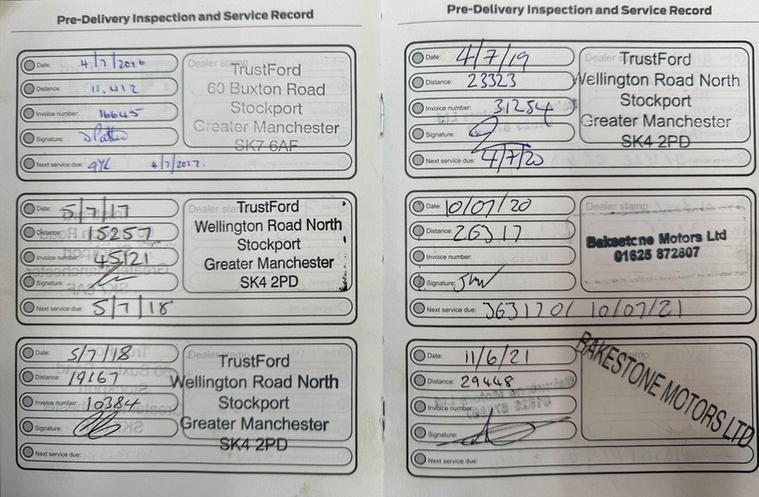 Pre-Delivery Inspection and Service Record
Date: 4/7/2016
Distance: 11,412
Invoice number: 16645
Signature:
Next service due: 4/7/2017.
Dealer stamp
TrustFord
60 Buxton Road
Stockport
Greater Manchester
SK7 6AF
Date: 5/7/17
Distance: 15257
Invoice number: 45121
Signature:
Next service due: 5/7/18
Dealer stamp
TrustFord
Wellington Road North
Stockport
Greater Manchester
SK4 2PD
Date: 5/7/18
Distance: 19167
Invoice number: 10384
Signature:
Next service due:
Dealer stamp
TrustFord
Wellington Road North
Stockport
Greater Manchester
SK4 2PD
Pre-Delivery Inspection and Service Record
Date: 4/7/19
Distance: 23323
Invoice number: 31254
Signature:
Next service due: 4/7/20
TrustFord
Wellington Road North
Stockport
Greater Manchester
SK4 2PD
Date: 10/07/20
Distance: 26317
Invoice number:
Signature:
Next service due: 10/07/21
Dealer stamp
Bakestone Motors Ltd
01625 872807
Date: 11/6/21
Distance: 29448
Invoice number:
Signature:
Next service due:
BAKESTONE MOTORS LTD